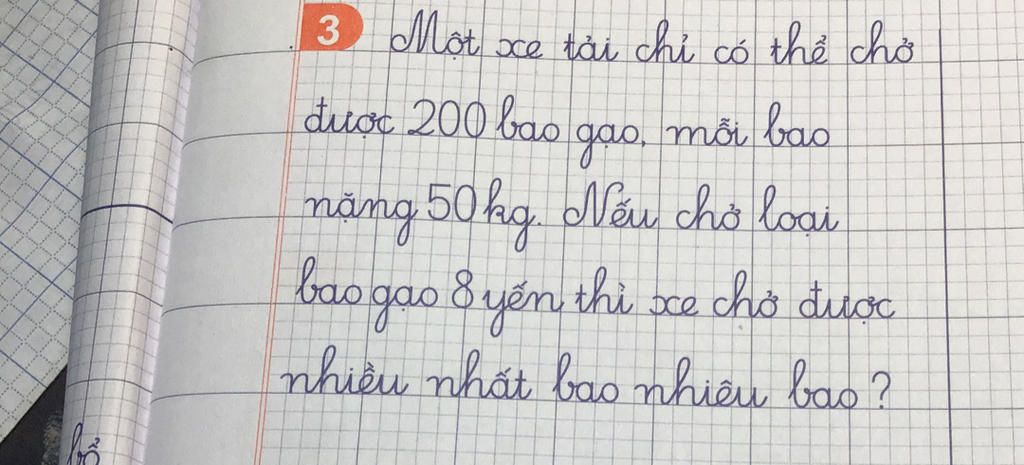 3 Một xe tải chỉ có thể chở
được 200 bao gạo, mỗi bao
nặng 50kg. Nếu chở loại
bao gạo 8 yến thì xe chở được
nhiều nhất bao nhiêu bao?
bổ